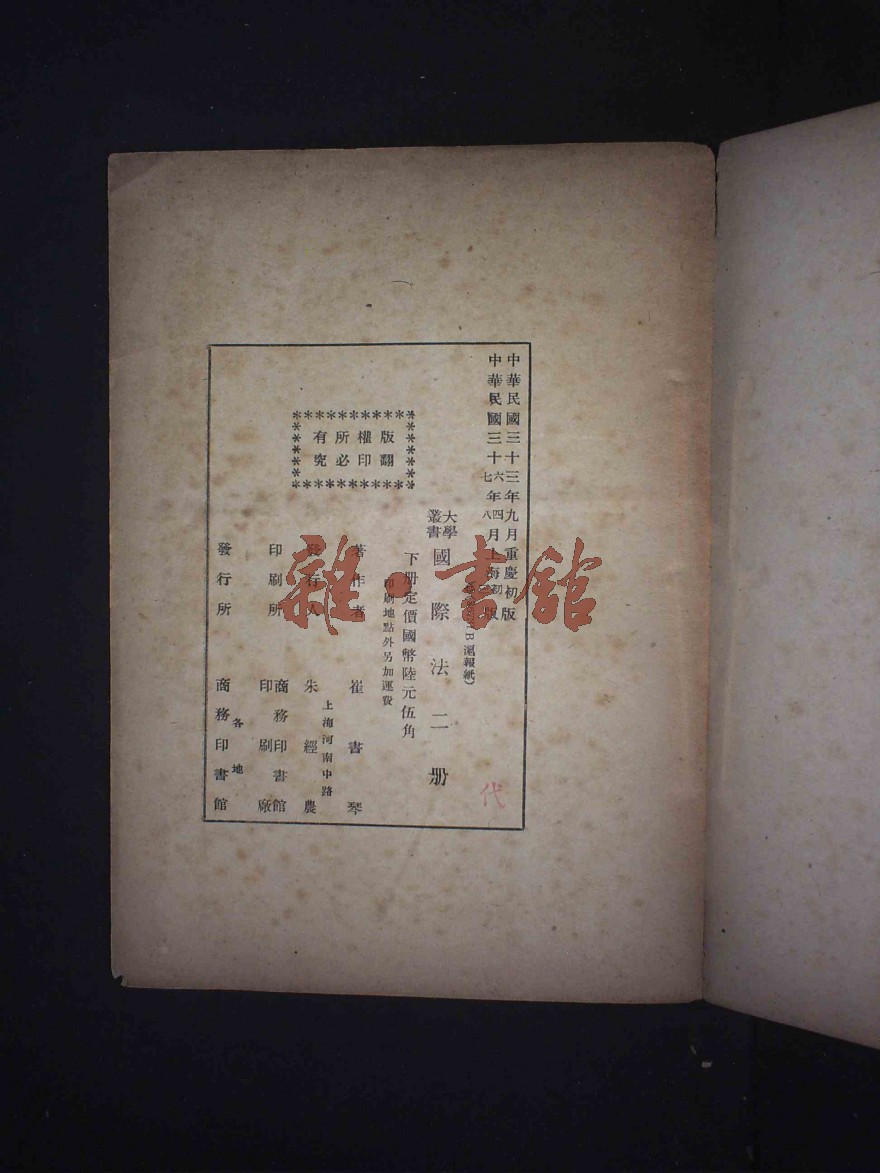 中華民國三十三年九月重慶初版
中華民國三十六年四月上海初版
七 八
大學叢書
國際法二册
B 滬報紙)
下册定價國幣陸元伍角
印刷地點外另加運費
版權所有
翻印必究
著作者 崔書琴
發行人 朱經農
上海河南中路
印刷所 商務印書館
印刷廠
發行所 商務印書館
各地
代
雜·書館